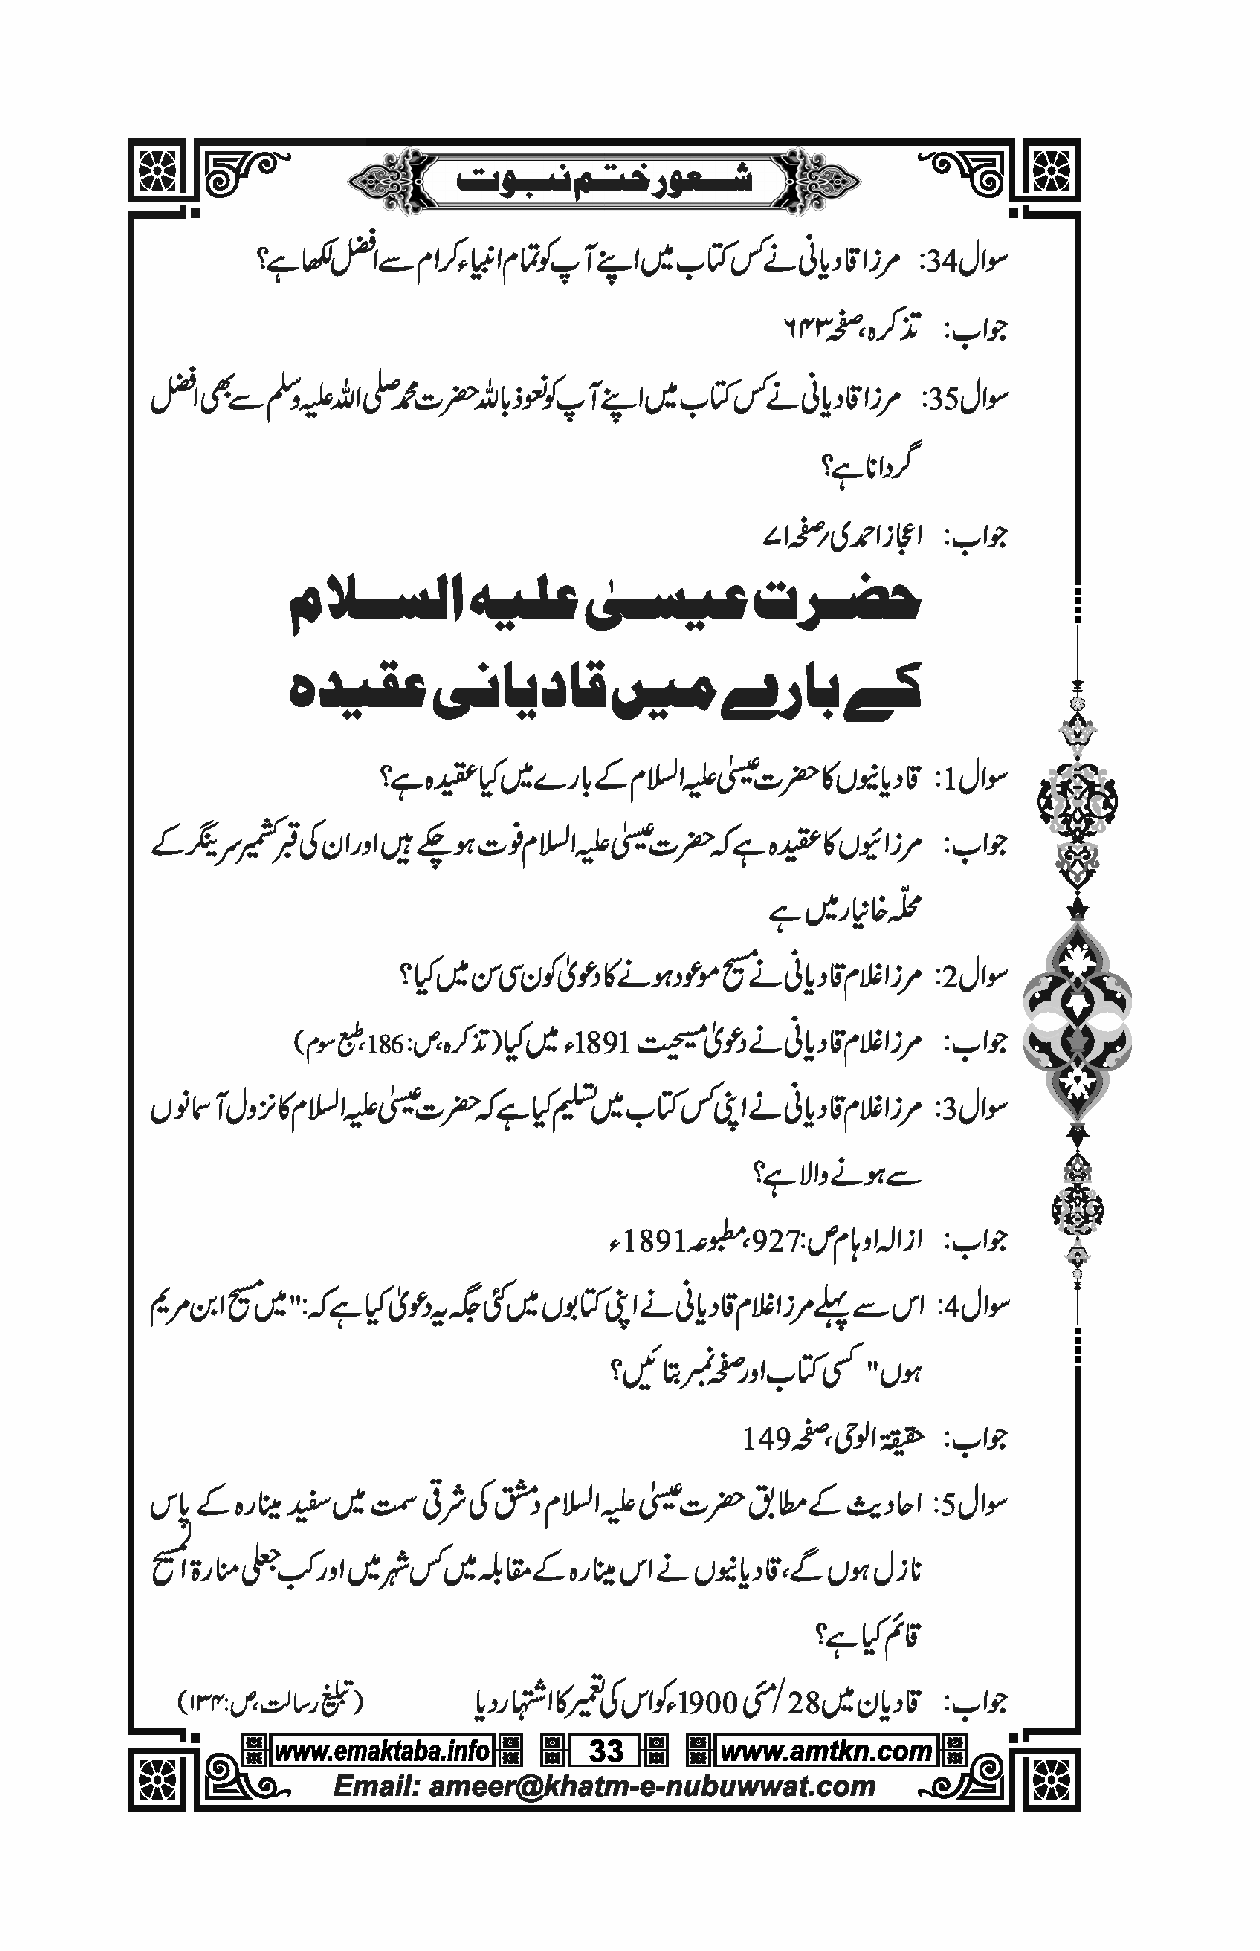 شعور ختم نبوت
سوال34: مرزا قادیانی نے کس کتاب میں اپنے آپ کو تمام انبیاء کرام سے افضل لکھا ہے؟
جواب: تذکرہ، صفحہ ۶۴۳
سوال35: مرزا قادیانی نے کس کتاب میں اپنے آپ کو نعوذ باللہ حضرت محمد صلی اللہ علیہ وسلم سے بھی افضل
گردانا ہے؟
جواب: اعجاز احمدی/ صفحہ ۷۱
حضرت عیسیٰ علیہ السلام
کے بارے میں قادیانی عقیدہ
سوال1: قادیانیوں کا حضرت عیسیٰ علیہ السلام کے بارے میں کیا عقیدہ ہے؟
جواب: مرزائیوں کا عقیدہ ہے کہ حضرت عیسیٰ علیہ السلام فوت ہو چکے ہیں اور ان کی قبر کشمیر سرینگر کے
محلّہ خانیار میں ہے
سوال2: مرزا غلام قادیانی نے مسیح موعود ہونے کا دعویٰ کون سی سن میں کیا؟
جواب: مرزا غلام قادیانی نے دعویٰ مسیحیت 1891ء میں کیا (تذکرہ، ص:186، طبع سوم)
سوال3: مرزا غلام قادیانی نے اپنی کس کتاب میں تسلیم کیا ہے کہ حضرت عیسیٰ علیہ السلام کا نزول آسمانوں
سے ہونے والا ہے؟
جواب: ازالہ اوہام ص:927، مطبوعہ 1891ء
سوال4: اس سے پہلے مرزا غلام قادیانی نے اپنی کتابوں میں کئی جگہ یہ دعویٰ کیا ہے کہ:"میں مسیح ابن مریم
ہوں" کسی کتاب اور صفحہ نمبر بتائیں؟
جواب: حقیقۃ الوحی، صفحہ 149
سوال5: احادیث کے مطابق حضرت عیسیٰ علیہ السلام دمشق کی شرقی سمت میں سفید مینارہ کے پاس
نازل ہوں گے، قادیانیوں نے اس مینارہ کے مقابلہ میں کس شہر میں اور کب جعلی منارۃ المسیح
قائم کیا ہے؟
جواب: قادیان میں 28/مئی 1900ء کو اس کی تعمیر کا اشتہار دیا (تبلیغ رسالت، ص:۱۳۴)
www.emaktaba.info 33 www.amtkn.com
Email: ameer@khatm-e-nubuwwat.com